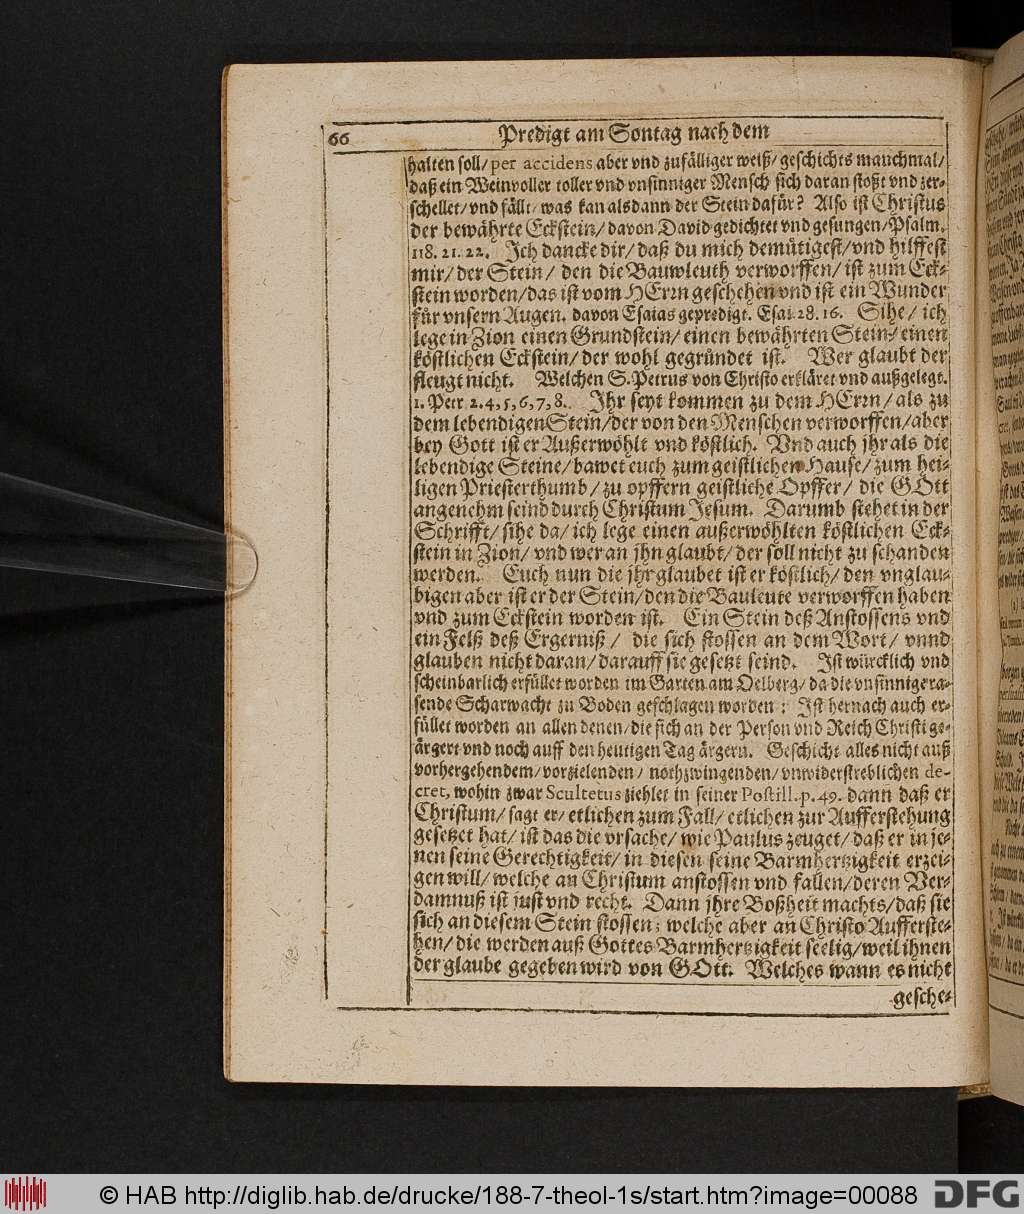 66 Predigt am Sontag nach dem
halten soll/ per accidens aber vnd zufälliger weiß/ geschichts manchmal/
daß ein Weinvoller toller vnd vnsinniger Mensch sich daran stoßt vnd zer-
schellet/ vnd fällt/ was kan alsdann der Stein dafür? Also ist Christus
der bewährte Eckstein/ davon David gedichtet vnd gesungen/ Psalm.
118. 21. 22. Ich dancke dir/ daß du mich demütigest/ vnd hilffest
mir/ der Stein/ den die Bauwleuth verworffen/ ist zum Eck-
stein worden/ das ist vom HErrn geschehen vnd ist ein Wunder
für vnsern Augen. davon Esaias gepredigt. Esai. 28. 16. Sihe/ ich
lege in Zion einen Grundstein/ einen bewährten Stein/ einen
köstlichen Eckstein/ der wohl gegründet ist. Wer glaubt der
fleugt nicht. Welchen S. Petrus von Christo erkläret vnd außgelegt.
1. Petr. 2. 4, 5, 6, 7, 8. Ihr seyt kommen zu dem HErrn/ als zu
dem lebendigen Stein/ der von den Menschen verworffen/ aber
bey Gott ist er Außerwöhlt vnd köstlich. Vnd auch jhr als die
lebendige Steine/ bawet euch zum geistlichen Hause/ zum hei-
ligen Priesterthumb/ zu opffern geistliche Opffer/ die GOtt
angenehm seind durch Christum Jesum. Darumb stehet in der
Schrifft/ sihe da/ ich lege einen außerwöhlten köstlichen Eck-
stein in Zion/ vnd wer an jhn glaubt/ der soll nicht zu schanden
werden. Euch nun die jhr glaubet ist er köstlich/ den vnglau-
bigen aber ist er der Stein/ den die Bauleute verworffen haben
vnd zum Eckstein worden ist. Ein Stein deß Anstossens vnd
ein Felß deß Ergerniß/ die sich stossen an dem Wort/ vnnd
glauben nicht daran/ darauff sie gesetzt seind. Ist würcklich vnd
scheinbarlich erfüllet worden im Garten am Oelberg/ da die vnsinnige ra-
sende Scharwacht zu Boden geschlagen worden: Ist hernach auch er-
füllet worden an allen denen/ die sich an der Person vnd Reich Christi ge-
ärgert vnd noch auff den heutigen Tag ärgern. Geschicht alles nicht auß
vorhergehendem/ vorzielenden/ nothzwingenden/ vnwiderstreblichen de-
cret, wohin zwar Scultetus ziehlet in seiner Postill. p. 49. dann daß er
Christum/ sagt er/ etlichen zum Fall/ etlichen zur Aufferstehung
gesetzet hat/ ist das die vrsache/ wie Paulus zeuget/ daß er in je-
nen seine Gerechtigkeit/ in diesen seine Barmhertzigkeit erzei-
gen will/ welche an Christum anstossen vnd fallen/ deren Ver-
damnuß ist just vnd recht. Dann jhre Boßheit machts/ daß sie
sich an diesem Stein stossen; welche aber an Christo Aufferste-
hen/ die werden auß Gottes Barmhertzigkeit seelig/ weil ihnen
der glaube gegeben wird von GOtt. Welches wann es nicht
gesche-
© HAB http://diglib.hab.de/drucke/188-7-theol-1s/start.htm?image=00088
DFG